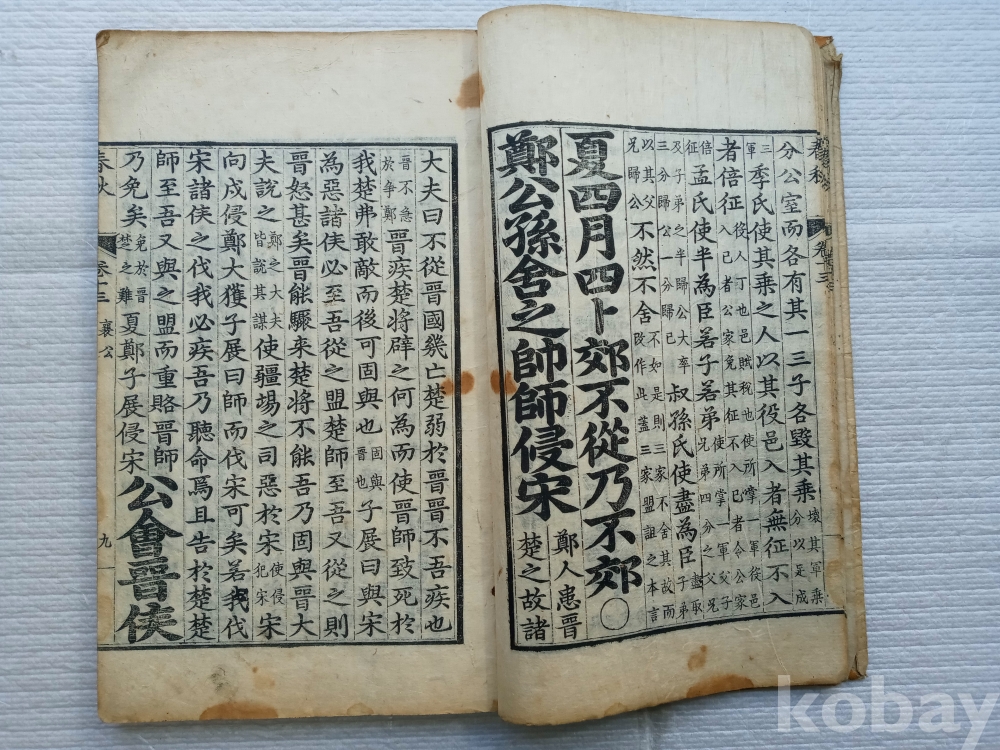 春秋 卷十三
分公室而各有其一三子各毀其乘壞其軍乘分以足成
三軍季氏使其乘之人以其役邑入者無征不入
者倍征役人丁也邑賦稅也使所掌一軍役邑入己者公家免其征不入己者令公家
倍征孟氏使半為臣若子若弟使所掌一軍父子兄弟四分之父兄
及子弟之半歸公大率三分歸公一分歸己叔孫氏使盡為臣盡取子弟
以其父兄歸公不然不舍不如是則三家不舍其故而改作此蓋三家盟詛之本言
夏四月四卜郊不從乃不郊○
鄭公孫舍之帥師侵宋鄭人患晉楚之故諸
大夫曰不從晉國幾亡楚弱於晉晉不吾疾也
晉不急於爭鄭晉疾楚將辟之何為而使晉師致死於
我楚弗敢敵而後可固與也固與晉也子展曰與宋
為惡諸侯必至吾從之盟楚師至吾又從之則
晉怒甚矣晉能驟來楚將不能吾乃固與晉大
夫說之鄭之大夫皆說其謀使疆埸之司惡於宋使侵犯宋
向戌侵鄭大獲子展曰師而伐宋可矣若我伐
宋諸侯之伐我必疾吾乃聽命焉且告於楚楚
師至吾又與之盟而重賂晉師
乃免矣免於晉楚之難夏鄭子展侵宋公會晉侯
春秋 卷十三 襄公 九
kobay